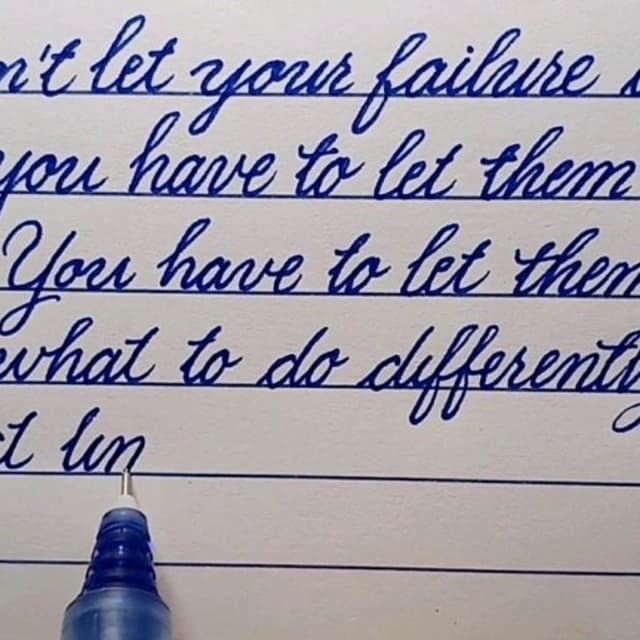 n't let your failure
you have to let them
You have to let them
what to do differently
t